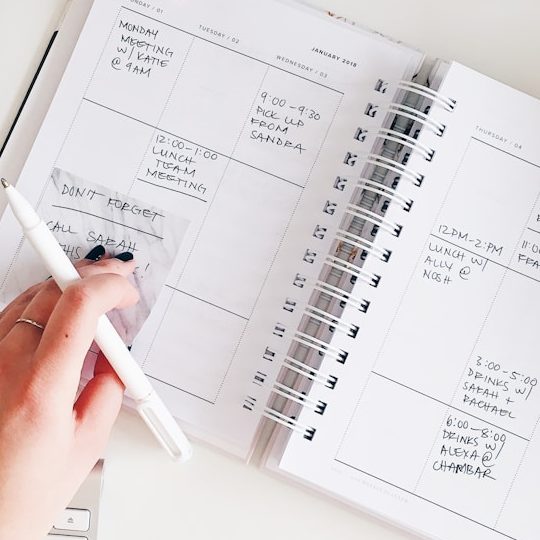 JANUARY 2018
UNDAY / 01
MONDAY
MEETING
W/ KATIE
@ 9AM
TUESDAY / 02
12:00-1:00
LUNCH
TEAM
MEETING
WEDNESDAY / 03
9:00-9:30
PICK UP
FROM
SANDRA
DON'T FORGET
CALL SARAH
!
THURSDAY / 04
12PM-2PM
LUNCH W/
ALLY @
NOSH
11:
FEA
3:00-5:00
DRINKS W/
SARAH +
RACHAEL
6:00-8:00
DRINKS W/
ALEXA @
CHAMBAR